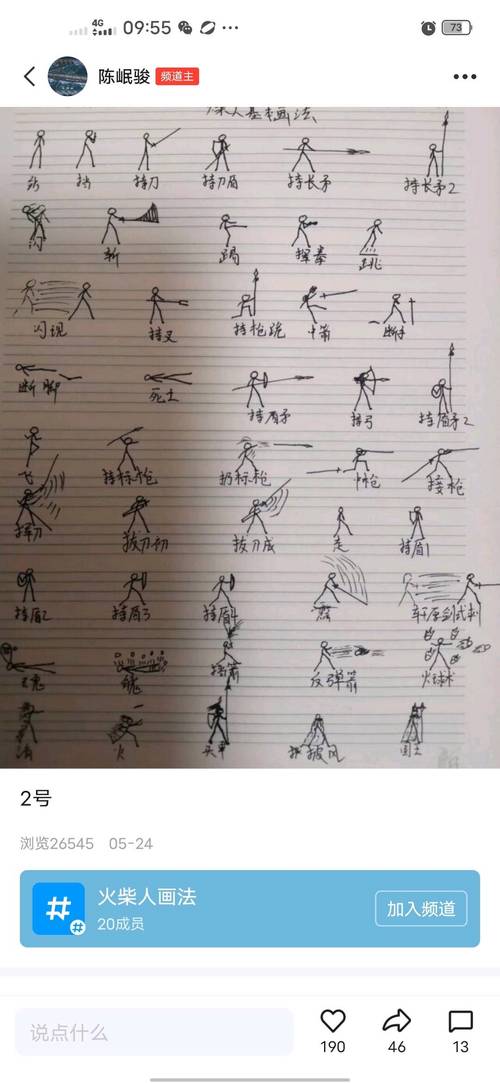 4G 09:55 73
陈岷骏 频道主
柴人基本画法
站 挡 持刀 持刀盾 持长矛 持长矛2
闪 斩 踢 挥拳 跳
闪现 持叉 持枪跪 中箭 断手
断脚 死亡 持盾矛 持弓 持盾矛2
飞 持标枪 扔标枪 中枪 接枪
挥刀 拔刀初 拔刀成 走 持盾1
持盾2 持盾3 持盾4
挡箭 反弹箭 火球术
火 披风 国王
2号
浏览26545 05-24
火柴人画法
20成员
加入频道
说点什么
190 46 13